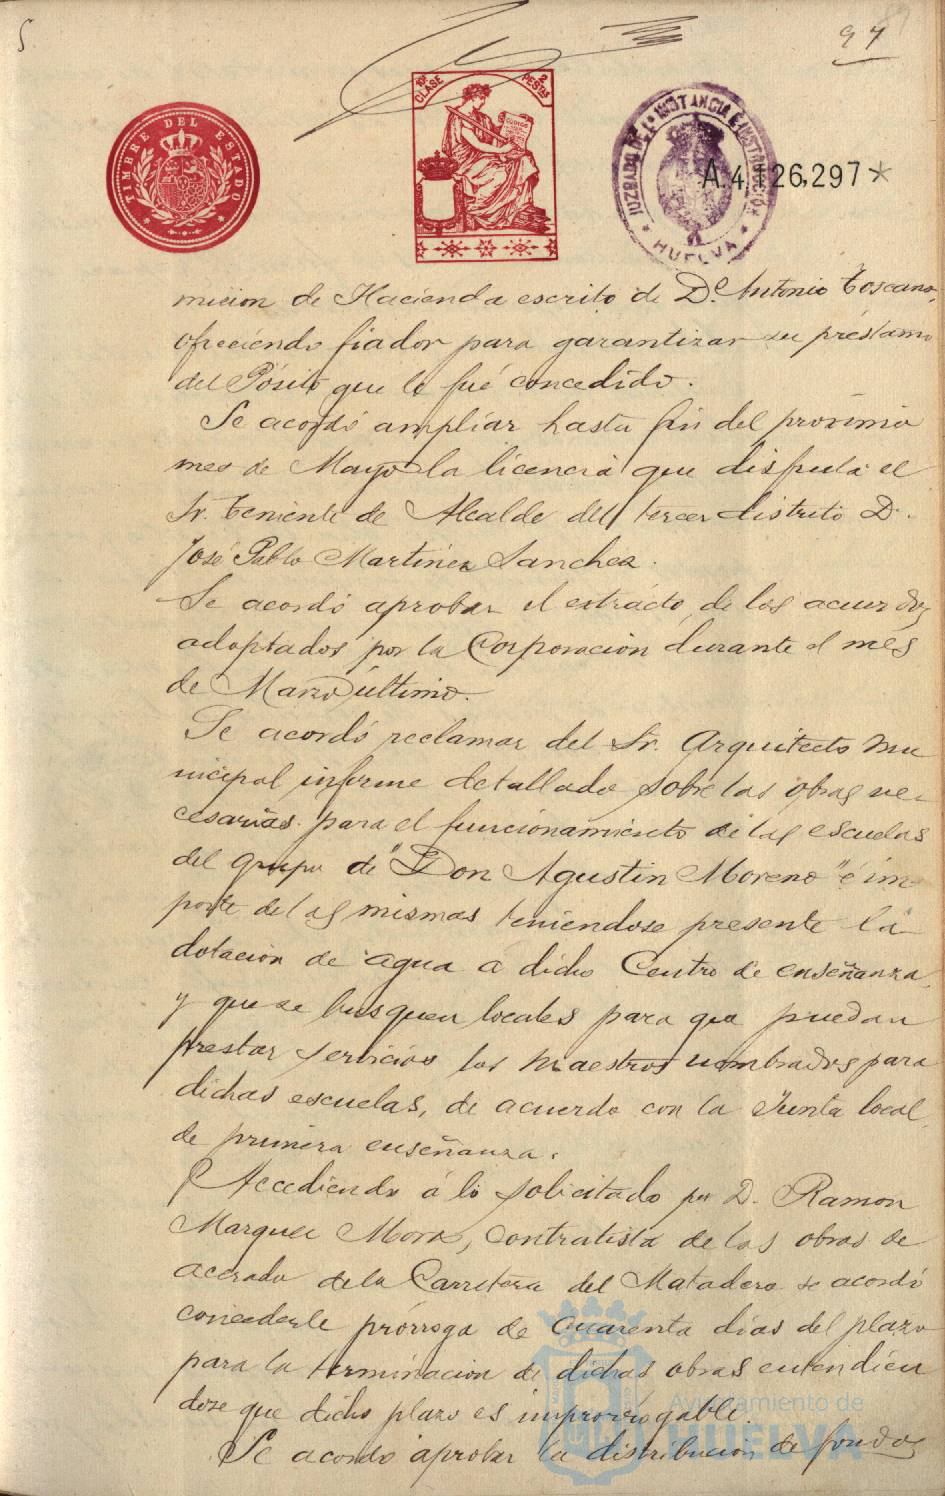 97
TIMBRE DEL ESTADO
10ª CLASE
2 PESETAS
CODIGO
JUZGADO DE 1ª INSTANCIA É INSTRUCCIÓN
HUELVA
A.4,126,297*
mision de Hacienda escrito de Dº Antonio Toscano,
ofreciendo fiador para garantizar su préstamo
del Pósito que le fué concedido.
Se acordó ampliar hasta fin del próximo
mes de Mayo la licencia que disfruta el
Sr. Teniente de Alcalde del tercer distrito D.
José Pablo Martinez Sanchez.
Se acordó aprobar el extracto de los acuerdos
adoptados por la Corporacion durante el mes
de Marzo último.
Se acordó reclamar del Sr. Arquitecto Mu
nicipal informe detallado sobre las obras ne-
cesarias para el funcionamiento de las escuelas
del grupo de "Don Agustin Moreno" é im-
porte de las mismas teniendose presente la
dotacion de agua á dicho Centro de enseñanza,
y que se busquen locales para que puedan
prestar servicios los maestros nombrados para
dichas escuelas, de acuerdo con la Junta local
de primera enseñanza.
Accediendo á lo solicitado por D. Ramon
Marquez Mora, contratista de las obras de
acerado de la Carretera del Matadero se acordó
concederle prórroga de cuarenta dias del plazo
para la terminacion de dichas obras entendien
dose que dicho plazo es improrrogable.
Se acordó aprobar la distribucion de fondos
Ayuntamiento de
HUELVA